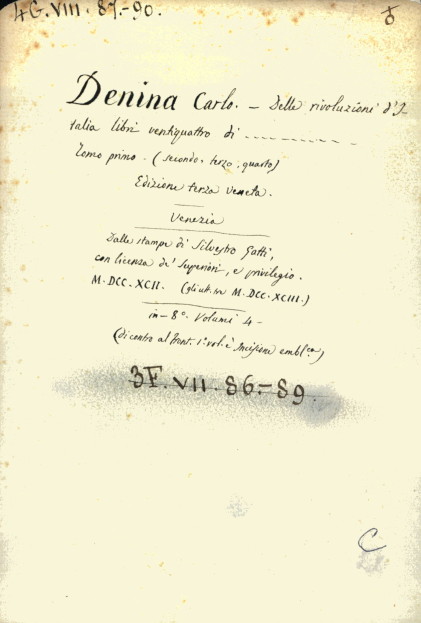 4G. VIII. 87.-90.
Denina Carlo. – Delle rivoluzioni d'I-
talia libri ventiquattro di ..........
Tomo primo. (secondo. terzo. quarto)
Edizione terza veneta.
Venezia
Dalle stampe di Silvestro Gatti,
con licenza de' Superiori, e privilegio.
M.DCC.XCII. (gli ult. tre M.DCC.XCIII.)
in-8º. Volumi 4-
(di contro al front. 1º. vol. è Incisione embl.ca)
3F. VII. 86.-89.
C